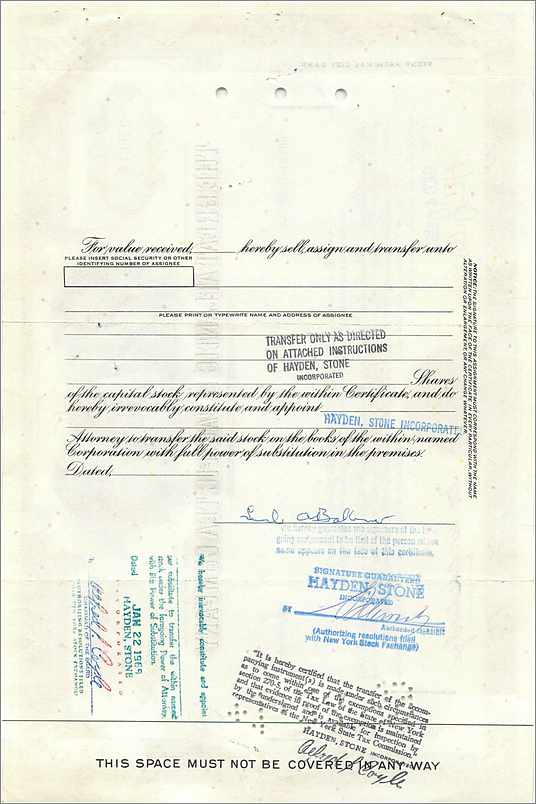 For value received, hereby sell, assign and transfer unto
PLEASE INSERT SOCIAL SECURITY OR OTHER
IDENTIFYING NUMBER OF ASSIGNEE
PLEASE PRINT OR TYPEWRITE NAME AND ADDRESS OF ASSIGNEE
TRANSFER ONLY AS DIRECTED
ON ATTACHED INSTRUCTIONS
OF HAYDEN, STONE
INCORPORATED
Shares
of the capital stock represented by the within Certificate, and do
hereby irrevocably constitute and appoint
HAYDEN, STONE INCORPORATE
Attorney to transfer the said stock on the books of the within named
Corporation with full power of substitution in the premises.
Dated,
NOTICE: THE SIGNATURE TO THIS ASSIGNMENT MUST CORRESPOND WITH THE NAME
AS WRITTEN UPON THE FACE OF THE CERTIFICATE IN EVERY PARTICULAR, WITHOUT
ALTERATION OR ENLARGEMENT OR ANY CHANGE WHATEVER.
name appears on the face of this certificate.
SIGNATURE GUARANTEED
HAYDEN, STONE
INCORPORATED
BY
Authorized Signature
(Authorizing resolutions filed
with New York Stock Exchange)
We hereby irrevocably constitute and appoint
per substitute to transfer the within named
stock under the foregoing Power of Attorney,
with like Power of Substitution.
Dated JAN 22 1969
HAYDEN, STONE
INCORPORATED
"It is hereby certified that the transfer of the accom-
panying instrument(s) is made under such circumstances
as to come within one of the exemptions specified in
section 270-c of the Tax Law of the State of New York
and that evidence in proof of the exemption is maintained
by the undersigned and is available for inspection by
representatives of the New York State Tax Commission."
HAYDEN, STONE INCORPORATED
THIS SPACE MUST NOT BE COVERED IN ANY WAY